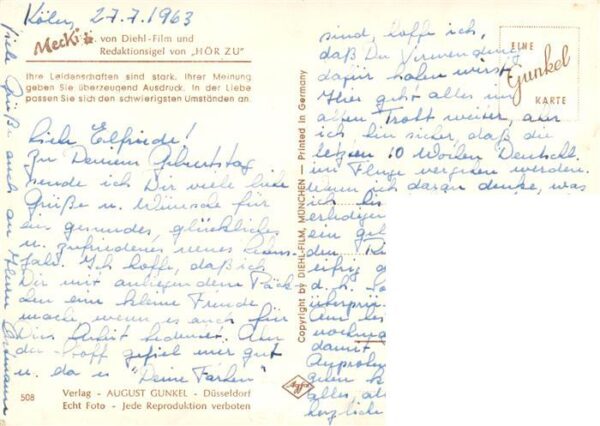 Köln, 27.7.1963
Mecki von Diehl-Film und
Redaktionsigel von „HÖR ZU"
Ihre Leidenschaften sind stark. Ihrer Meinung
geben Sie überzeugend Ausdruck. In der Liebe
passen Sie sich den schwierigsten Umständen an.
Liebe Elfriede!
Zu Deinem Geburtstag
sende ich Dir viele liebe
Grüße u. Wünsche für
ein gesundes, glückliches
u. zufriedenes neues Lebens-
jahr. Ich hoffe, daß ich
Dir mit anliegendem Päck-
chen eine kleine Freude
mache, wenn es auch für
Dich Arbeit bedeutet. Aber
der Stoff gefiel mir gut
u. da es "Deine Farben"
508
Verlag - AUGUST GUNKEL - Düsseldorf
Echt Foto - Jede Reproduktion verboten
Viele Grüße auch an Herrn
Copyright by DIEHL-FILM, MÜNCHEN — Printed in Germany
Agfa
EINE
Gunkel
KARTE
sind, hoffe ich,
daß Du Verwendung
dafür haben wirst.
Hier geht alles im
alten Trott weiter, aber
ich bin sicher, daß die
letzten 10 Wochen Deutschl.
im Fluge vergehen werden.
Wenn ich daran denke, was
ich
erledigen
ein
den
eifrig
d. h.
überprü
uns
nochmal
damit
Anproben

alles,
herzliche